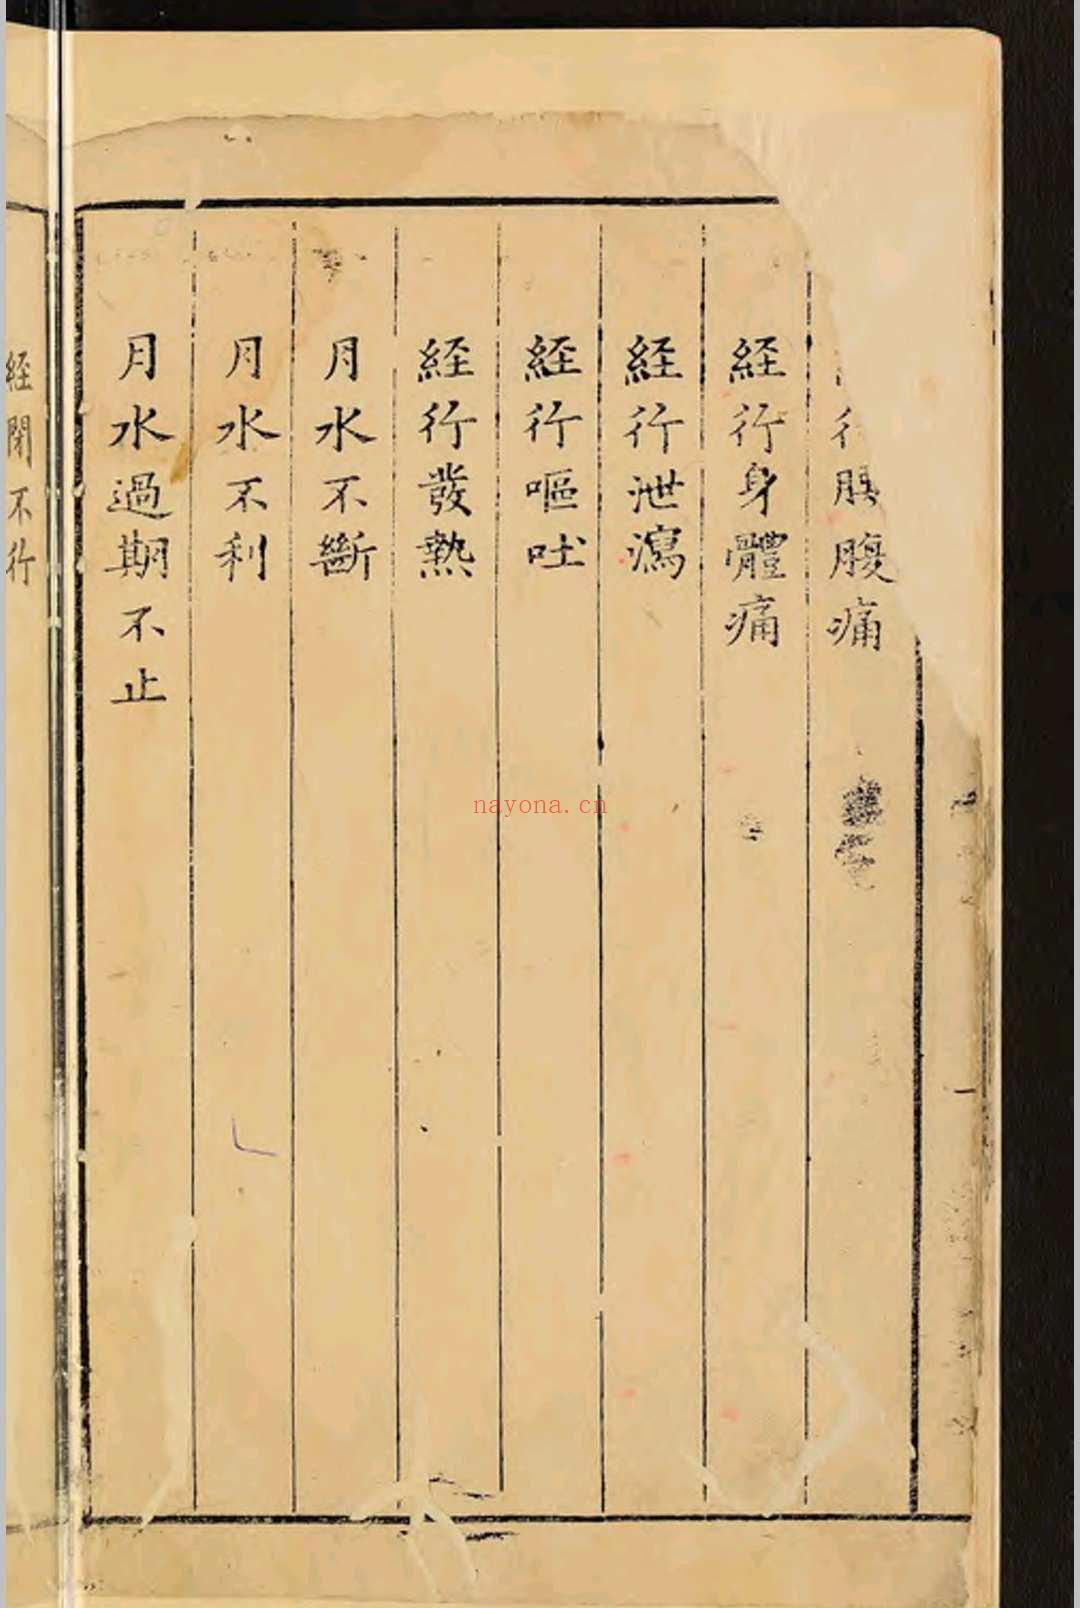 行腹痛
経行身體痛
経行泄瀉
経行嘔吐
経行發熱
月水不斷
月水不利
月水過期不止
経閉不行
nayona.cn